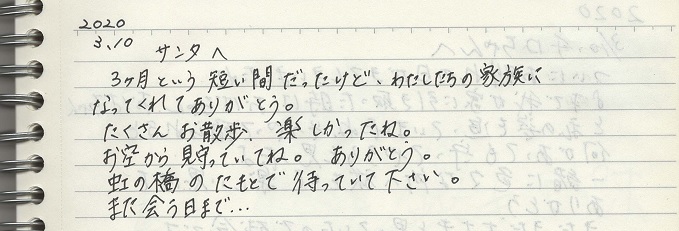 2020
3.10 サンタへ
3ヶ月という短い間だったけど、わたしたちの家族に
なってくれてありがとう。
たくさんお散歩 楽しかったね。
お空から見守っていてね。 ありがとう。
虹の橋のたもとで待っていて下さい。
また会う日まで…